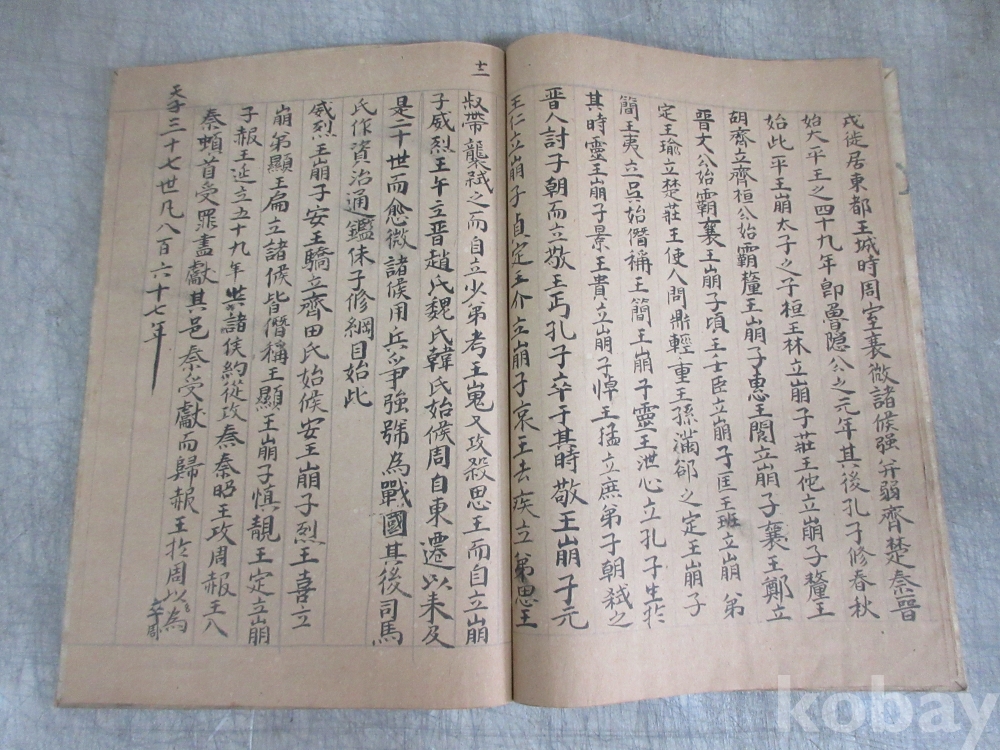 戎徙居東都王城時周室衰微諸侯强并弱齊楚秦晋
始大平王之四十九年卽魯隱公之元年其後孔子修春秋
始此平王崩太子之子桓王林立崩子莊王佗立崩子釐王
胡齊立齊桓公始霸釐王崩子惠王閬立崩子襄王鄭立
晋文公始霸襄王崩子頃王壬臣立崩子匡王班立崩弟
定王瑜立楚莊王使人問鼎輕重王孫滿郤之定王崩子
簡王夷立吳始僭稱王簡王崩子靈王泄心立孔子生於
其時靈王崩子景王貴立崩子悼王猛立庶弟子朝弑之
晋人討子朝而立敬王丐孔子卒于其時敬王崩子元
王仁立崩子貞定王介立崩子哀王去疾立弟思王
十二
叔帶襲弑之而自立少弟考王嵬又攻殺思王而自立崩
子威烈王午立晋趙氏魏氏韓氏始候周自東遷以來及
是二十世而愈微諸候用兵爭強號為戰國其後司馬
氏作資治通鑑朱子修綱目始此
威烈王崩子安王驕立齊田氏始候安王崩子烈王喜立
崩弟顯王扁立諸候皆僭稱王顯王崩子愼靚王定立崩
子赧王延立五十九年與諸侯約從攻秦秦昭王攻周赧王入
秦頓首受罪盡獻其邑秦受獻而歸赧王於周以為
辛周
天子三十七世凡八百六十七年
kobay